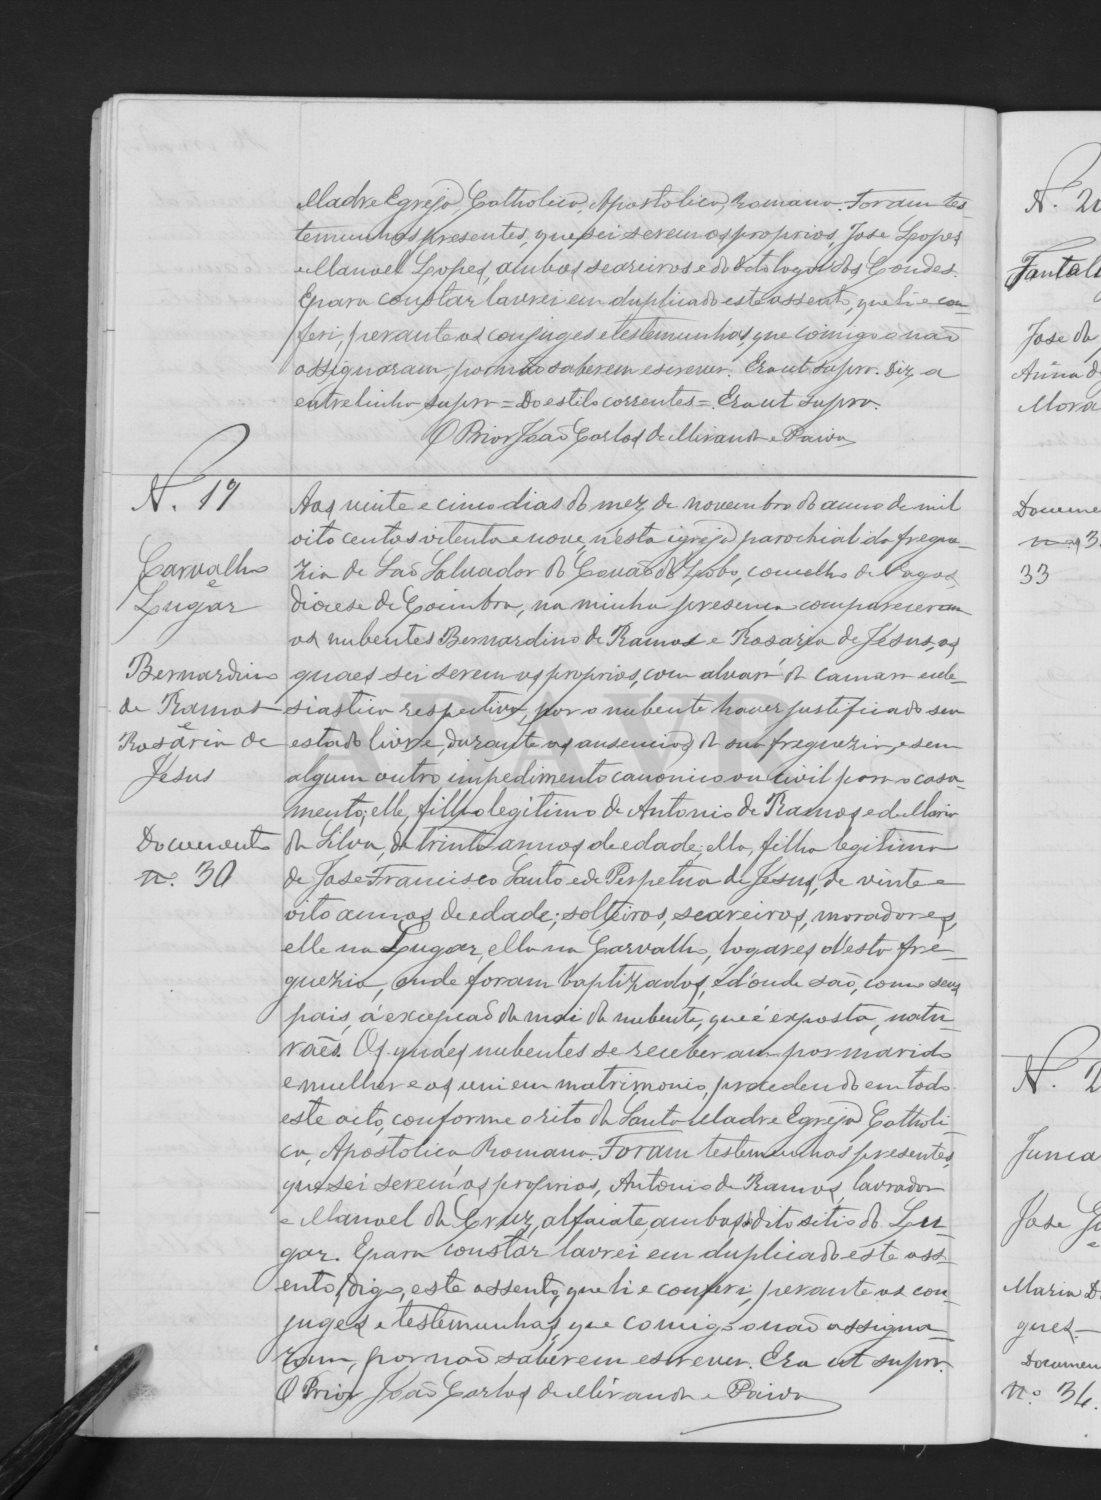 Madre Egreja, Catholica, Apostolica, Romana. Foram tes-
temunhas presentes, que sei serem os proprios, Jose Lopes
e Manoel Lopes, ambos seareiros e do dito logar dos Condes.
E para constar lavrei em duplicado este assento, que li e con-
feri, perante os conjuges e testemunhas, que comigo o não
assignaram, por não saberem escrever. Era ut supra. Diz a
entrelinha supra = Do estilo correntes =. Era ut supra.
O Prior João Carlos de Miranda e Paiva
N. 19
Carvalho
e
Lugar
Bernardino
de Ramos
e
Rosaria de
Jesus
Documento
n.º 30
Aos vinte e cinco dias do mez de novembro do anno de mil
oito centos oitenta e nove, nesta igreja parochial da fregue-
zia de São Salvador do Covão do Lobo, concelho de Vagos,
diocese de Coimbra, na minha presença compareceram
os nubentes Bernardino de Ramos e Rosaria de Jesus, os
quaes sei serem os proprios, com alvará da camara eccle-
siastica respectiva, por o nubente haver justificado seu
estado livre, durante as ausencias da sua freguezia, e sem
algum outro impedimento canonico ou civil para o casa-
mento; elle, filho legitimo de Antonio de Ramos e de Maria
da Silva, de trinta annos de edade; ella, filha legitima
de Jose Francisco Santo e de Perpetua de Jesus, de vinte e
oito annos de edade; solteiros, seareiros, moradores,
elle no Lugar, ella no Carvalho, logares d'esta fre-
guezia, onde foram baptizados, e d'onde são, como seus
pais, á excepção da mãi da nubente, que é exposta, natu-
raes. Os quaes nubentes se receberam por marido
e mulher e os uni em matrimonio, procedendo em todo
este acto, conforme o rito da Santa Madre Egreja Catholi-
ca, Apostolica Romana. Foram testemunhas presentes,
que sei serem os proprios, Antonio de Ramos, lavrador
e Manoel da Cruz, alfaiate, ambos do dito sitio do Lu-
gar. E para constar lavrei em duplicado este ass-
ento, digo, este assento, que li e conferi, perante os con-
juges e testemunhas, que comigo o não assigna-
ram, por não saberem escrever. Era ut supra.
O Prior João Carlos de Miranda e Paiva
N. 2
Jose da
Anna d
Mora
Docume
n.os 3
33
N. 2
Junca
Jose
e
Maria D
gues
Documen
n.º 34.
ADAVR